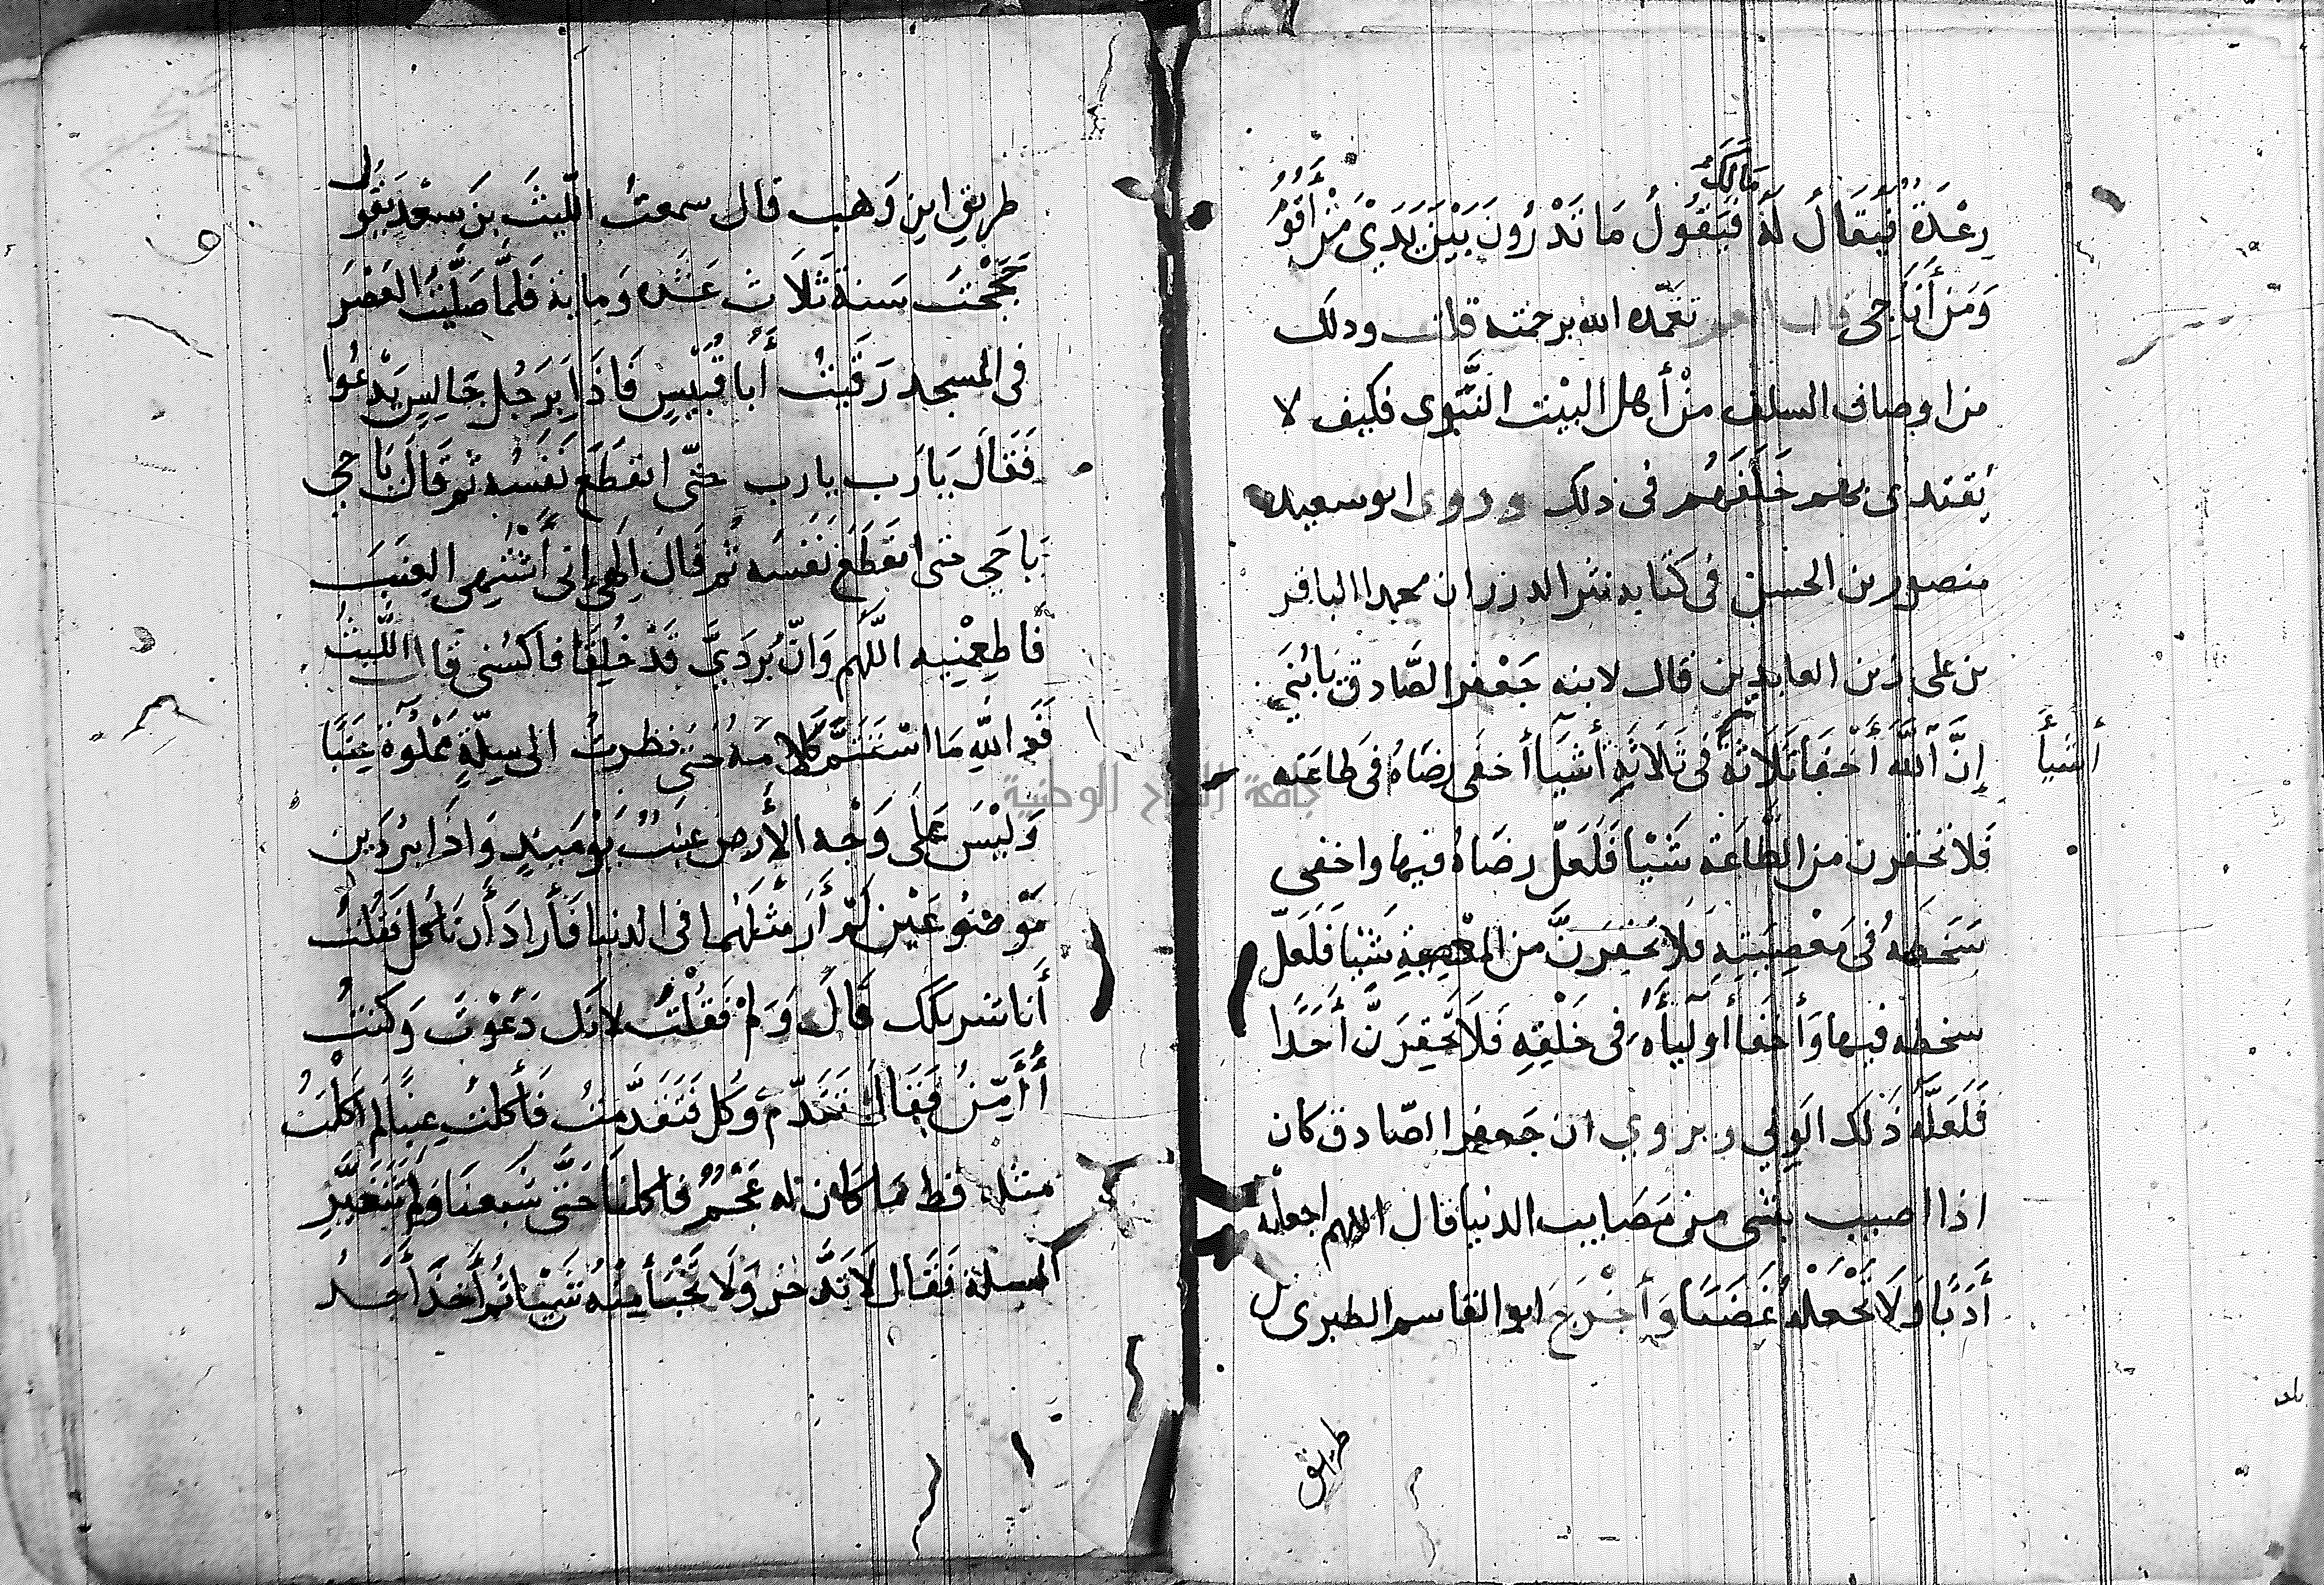 مَالَكَ
رِعْدَةٌ فيُقَالُ لَهُ فَيَقُولُ مَا تَدْرُونَ بَيْنَ يَدَيْ مَنْ أَقُومُ
وَمَنْ أُنَاجِى قال تغمّده الله برحمته قلت وذلك
من اوصاف السلف مِنْ أَهل البيْت النَّبَوى فكيف لا
يَقتدى بهم خَلَفَهُم فى ذلك وروى ابو سعيد
منصور بن الحسين فى كتابه نثر الدرر ان محمدا الباقر
بن على زين العابدين قال لابنه جَعْفر الصَّادق يَابُنَي
إِنَّ اللَّهَ أَخْفَا ثَلَاثَةً فِى ثَلَاثَةِ أَشيَا أخفَى رضَاهُ فى طاعَته
أشيَأ
فَلَا تحقرن من الطَّاعَة شَيْا فَلَعَلّ رضَاهُ فيها واخفى
سَخَطهُ فى مَعْصِيَتِهِ فَلَا تحقِرَنَّ من المعْصِيَةِ شَيْا فَلَعَلّ
سخطه فيها وَأَخفَا أَوليَأهُ فى خَلْقِهِ فَلَا تَحقِرَنَّ أَحَدًا
فَلَعَلَّهُ ذَلك الوَلِي ويروي ان جَعفر الصّادق كان
اذا اصيب بشى من مَصَايب الدنيا قال اللهم اجعله
أَدَبًا وَلَا تَجْعَلْهُ غَضَبًا وَأَخْرَجَ ابو القاسم الطبرى
طريق
طريق ابن وَهْب قال سمعتُ اللّيثَ بنَ سعْدٍ يَقول
حَجَجْتُ سنة ثَلَاث عَشرة وَماية فَلَمَّا صَلَّيْتُ العَصْرَ
فى المسجد رَقيْتُ أَبَا قُبَيْسٍ فَاذَا بِرَجُلٍ جَالِسٍ يَدْعُوا
فَقَالَ يَارَب يارب حَتّى انقطَعَ نَفَسُه ثُم قَالَ يَا حى
يَا حَى حتى انقَطَعَ نَفَسُه ثُم قَالَ إلَهِى إنى أَشْتهى العِنَبَ
فَاطعِمْنِيه اللَّهُم وَانّ بُردَيَّ قَدْ خَلِقَا فاكسُنى قال اللَّيثُ
فَوَاللّهِ مَا اسْتَتَمَّ كَلَامَهُ حَتى نظرتُ الى سلّةٍ مَمْلُوَّةٍ عِنَبًا
وَليْسَ عَلَى وَجْه الأَرض عِنَبٌ يَوْمَيذٍ وَاذَا بُردَين
مَوْضوعَيْن لَمْ أَرَ مثلَهُما فى الدنيا فَأَرادَ أَن يَاكُل فَقُلْتُ
أَنا شريكك قَالَ وَلِمَ فَقُلْتُ لانك دَعَوْتَ وَكُنتُ
أُأَمِّنُ فَقَالَ تَقَدّم وَكُل فَتَقَدَّمتُ فَأَكلتُ عِنَبًا لم اكلتُ
مثله قط مَا كَان له عَجْمٌ فاكلنا حَتَّى شبعنَا وَلَم تَتَغَيَّرِ
السلة فَقَال لَا تَدَّخر وَلَا تَخْبَأ مِنْهُ شَيْا ثُم أَخَذَ أَحَدُ
جامعة النجاح الوطنية